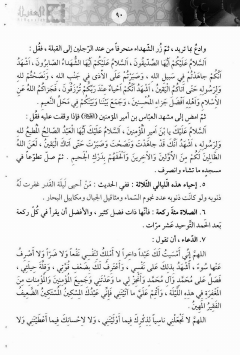 ٩٠
وادعُ بما تريد ، ثمّ زُر الشّهداء منحرفاً من عند الرّجلين إلى القبلة ، فقُل :
اَلسَّلامُ عَلَيْكُمْ اَيُّهَا الصِّدّيقُونَ، اَلسَّلامُ عَلَيْكُمْ اَيُّهَا الشُّهَداءُ الصّابِرُونَ، اَشْهَدُ
اَنَّكُمْ جاهَدْتُمْ فِي سَبيلِ اللهِ ، وَصَبَرْتُمْ عَلَى الْاَذى فِي جَنْبِ اللهِ ، وَنَصَحْتُمْ لِلّهِ
وَلِرَسُولِهِ حَتّى اَتاكُمُ الْيَقينُ ، اَشْهَدُ اَنَّكُمْ اَحْياءٌ عِنْدَ رَبِّكُمْ تُرْزَقُونَ، فَجَزاكُمُ اللهُ عَنِ
الْاِسْلامِ وَاَهْلِهِ اَفْضَلَ جَزاءِ الْمُحْسِنينَ ، وَجَمَعَ بَيْنَنا وَبَيْنَكُمْ فِي مَحَلِّ النَّعيمِ .
ثمّ امضِ إلى مشهد العبّاس بن أمير المؤمنين ، فإذا وقفت عليه فقُل :
اَلسَّلامُ عَلَيْكَ يَا بْنَ اَميرِ الْمُؤْمِنينَ ، اَلسَّلامُ عَلَيْكَ اَيُّهَا الْعَبْدُ الصّالِحُ الْمُطيعُ لِلّهِ
وَلِرَسُولِهِ ، اَشْهَدُ اَنَّكَ قَدْ جاهَدْتَ وَنَصَحْتَ وَصَبَرْتَ حَتّى اَتاكَ الْيَقينُ ، لَعَنَ اللهُ
الظّالِمينَ لَكُمْ مِنَ الْاَوَّلينَ وَالْآخِرينَ وَاَلْحَقَهُمْ بِدَرْكِ الْجَحيمِ . ثمّ صلِّ تطوّعاً في
مسجده ما تشاء وانصرف .
٥. إحياء هذه اللّيالي الثّلاثة : ففي الحديث : مَن أحيى ليلة القدر غفرت له
ذنوبه ولو كانت ذنوبه عدد نجوم السّماء ومثاقيل الجبال ومكاييل البحار .
٦. الصلاة مئة ركعة : فإنّها ذات فضل كثير ، والأفضل أن يقرأ في كلّ ركعة
بعد الحمد التوحيد عشر مرّات .
٧. الدّعاء ، أن تقول :
اَللّهُمَّ اِنّي اَمْسَيْتُ لَكَ عَبْداً داخِراً لا اَمْلِكُ لِنَفْسي نَفْعاً وَلا ضَرّاً وَلا اَصْرِفُ
عَنْها سُوءاً ، اَشْهَدُ بِذلِكَ عَلى نَفْسي ، وَاَعْتَرِفُ لَكَ بِضَعْفِ قُوَّتي ، وَقِلَّةِ حيلَتي ،
فَصَلِّ عَلى مُحَمَّدٍ وَآلِ مُحَمَّدٍ وَاَنْجِزْ لي ما وَعَدْتَني وَجَميعَ الْمُؤْمِنينَ وَالْمُؤْمِناتِ مِنَ
الْمَغْفِرَةِ فِي هذِهِ اللَّيْلَةِ ، وَاَتْمِمْ عَلَيَّ ما آتَيْتَني فَاِنّي عَبْدُكَ الْمِسْكينُ الْمُسْتَكينُ الضَّعيفُ
الْفَقيرُ الْمَهينُ .
اَللّهُمَّ لا تَجْعَلْني ناسِياً لِذِكْرِكَ فيما اَوْلَيْتَني ، وَلا لِاِحْسانِكَ فيما اَعْطَيْتَني وَلا